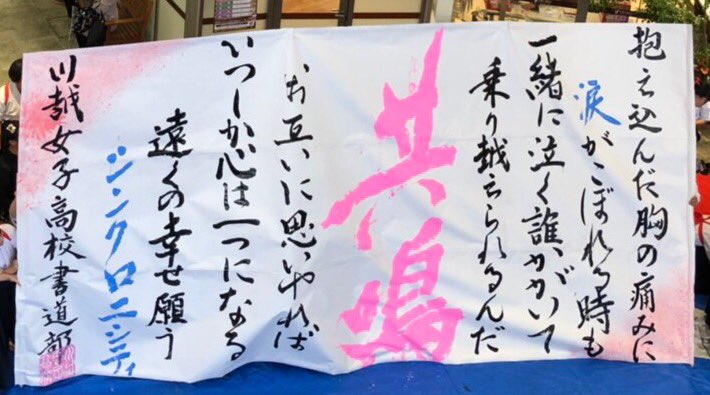 抱え込んだ胸の痛みに
涙がこぼれる時も
一緒に泣く誰かがいて
乗り越えられるんだ
共鳴
お互いに思いやれば
いつしか心は一つになる
遠くの幸せ願う
シンクロニシティ
川越女子高校書道部